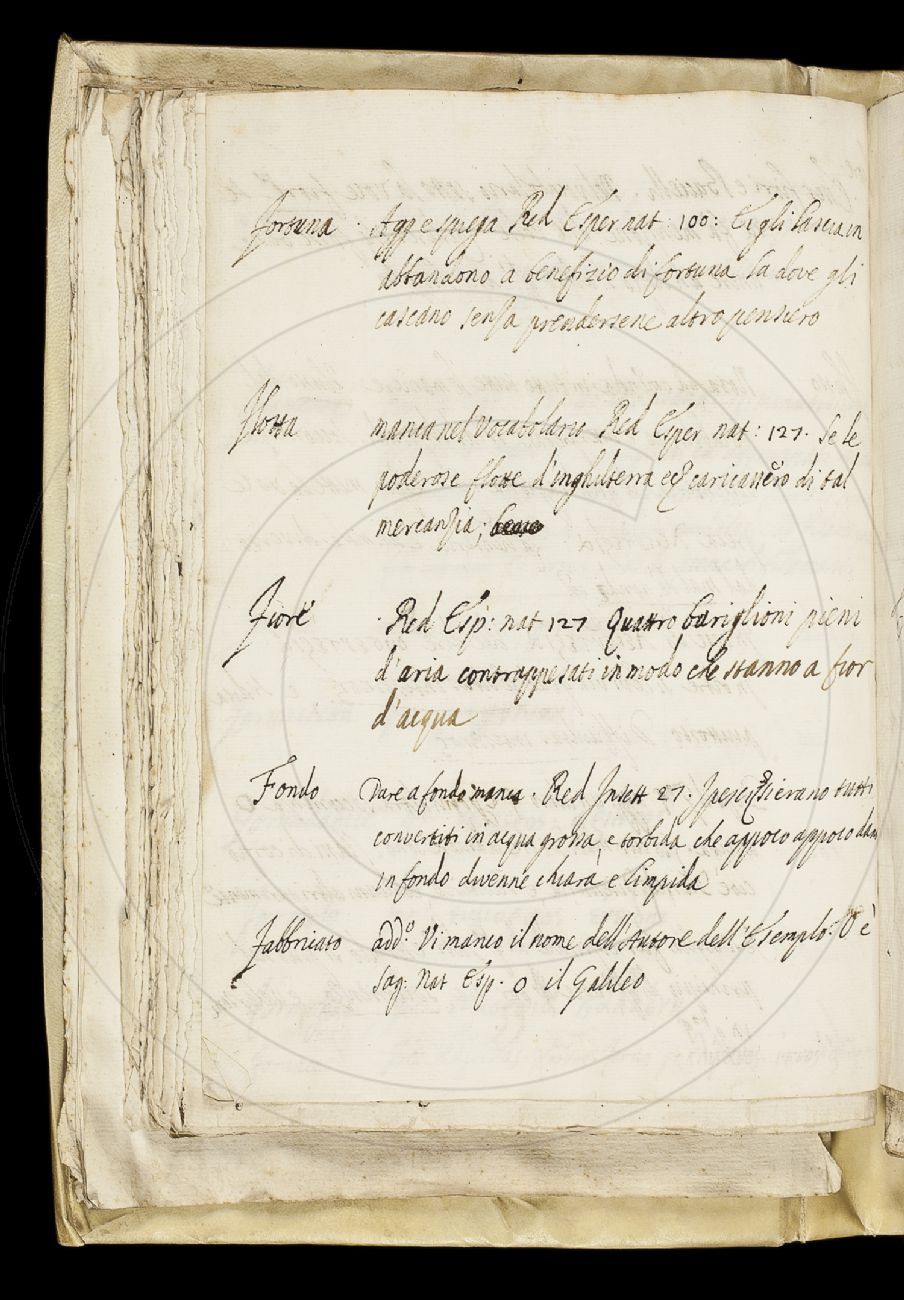 Fortuna · Agg e spiega Red Esper nat: 100: E gli lascia in
abbandono a benefizio di fortuna la dove gli
cascano senza prendersene altro pensiero
Flotta manca nel Vocabolario Red Esper nat: 127. Se le
poderose flotte d'inghilterra caricassero di tal
mercanzia;
Fiore · Red Esp: nat 127 Quattro bariglioni pieni
d'aria contrappesati in modo che stanno a fior
d'acqua
Fondo Dare a fondo manca. Red Insett 27. I pesci si erano tutti
convertiti in acqua grossa, e torbida che appoco appoco
in fondo divenne chiara e limpida
Fabbricato add.º Vi manca il nome dell'Autore dell'Esemplo. O è
Sag: Nat Esp. o il Galileo